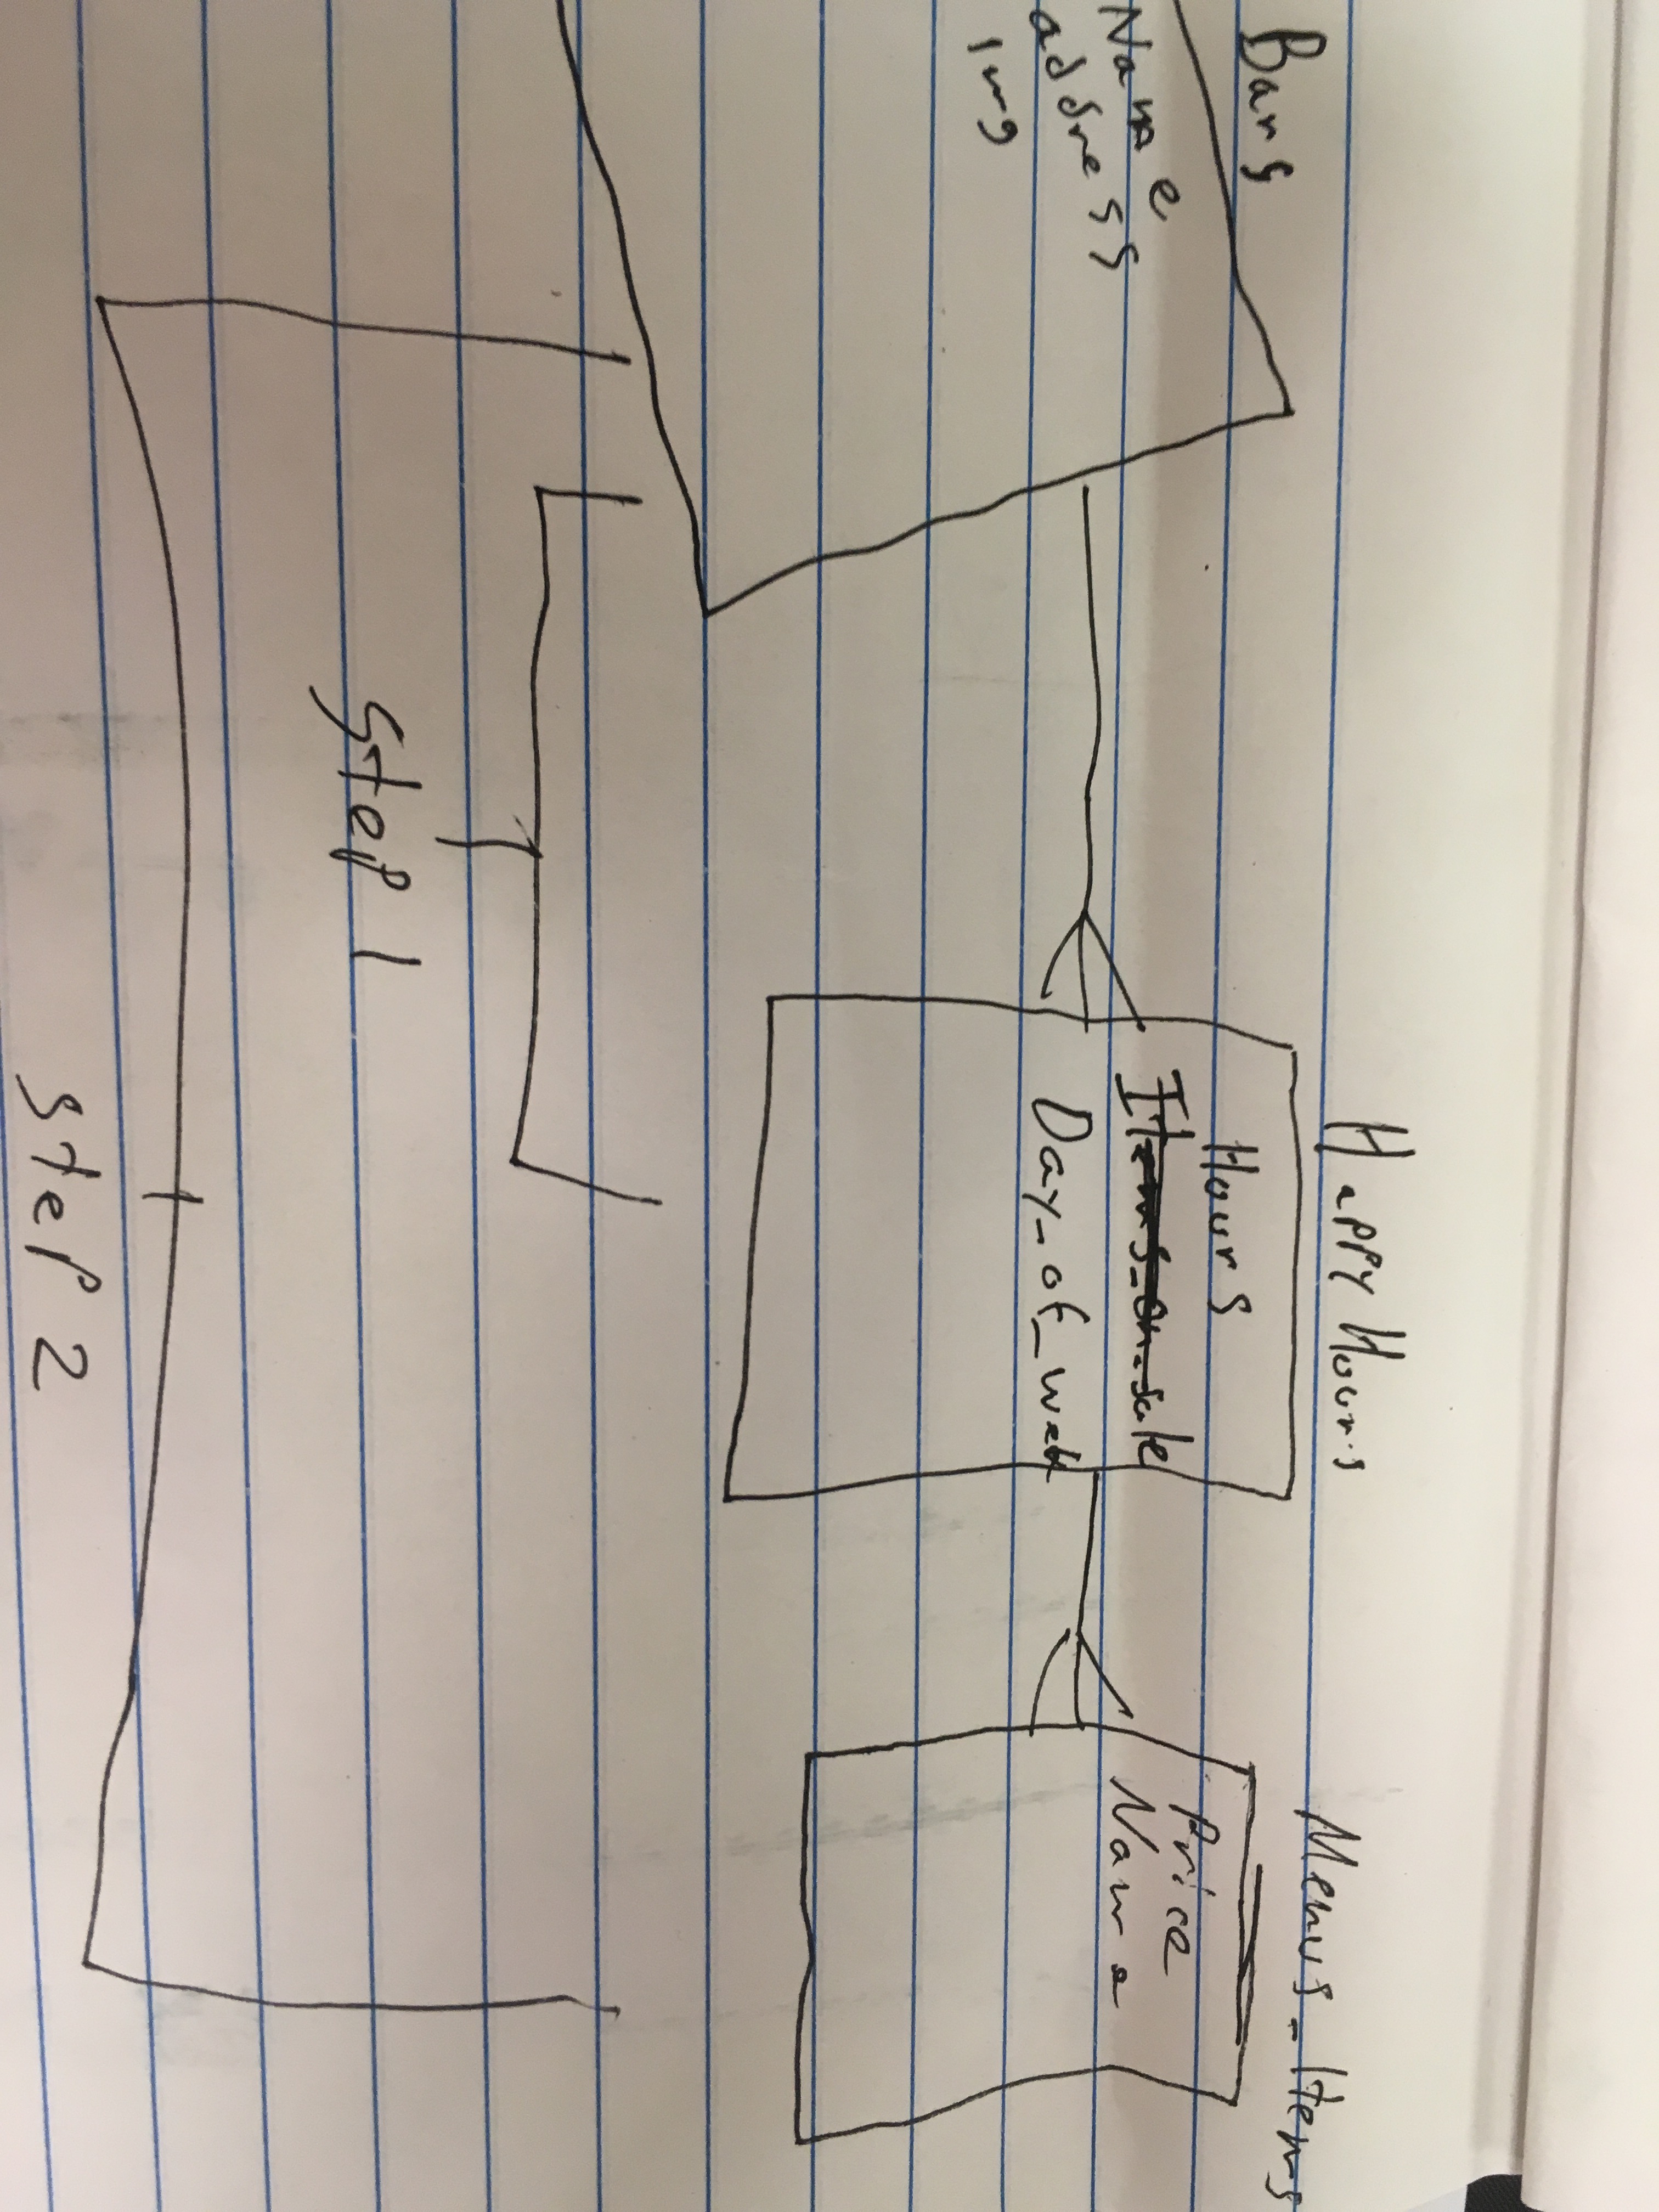 Bars
Name
address
img
Happy Hours
Hours
Items_on_sale
Day_of_week
Menus_Items
Price
Name
Step 1
Step 2